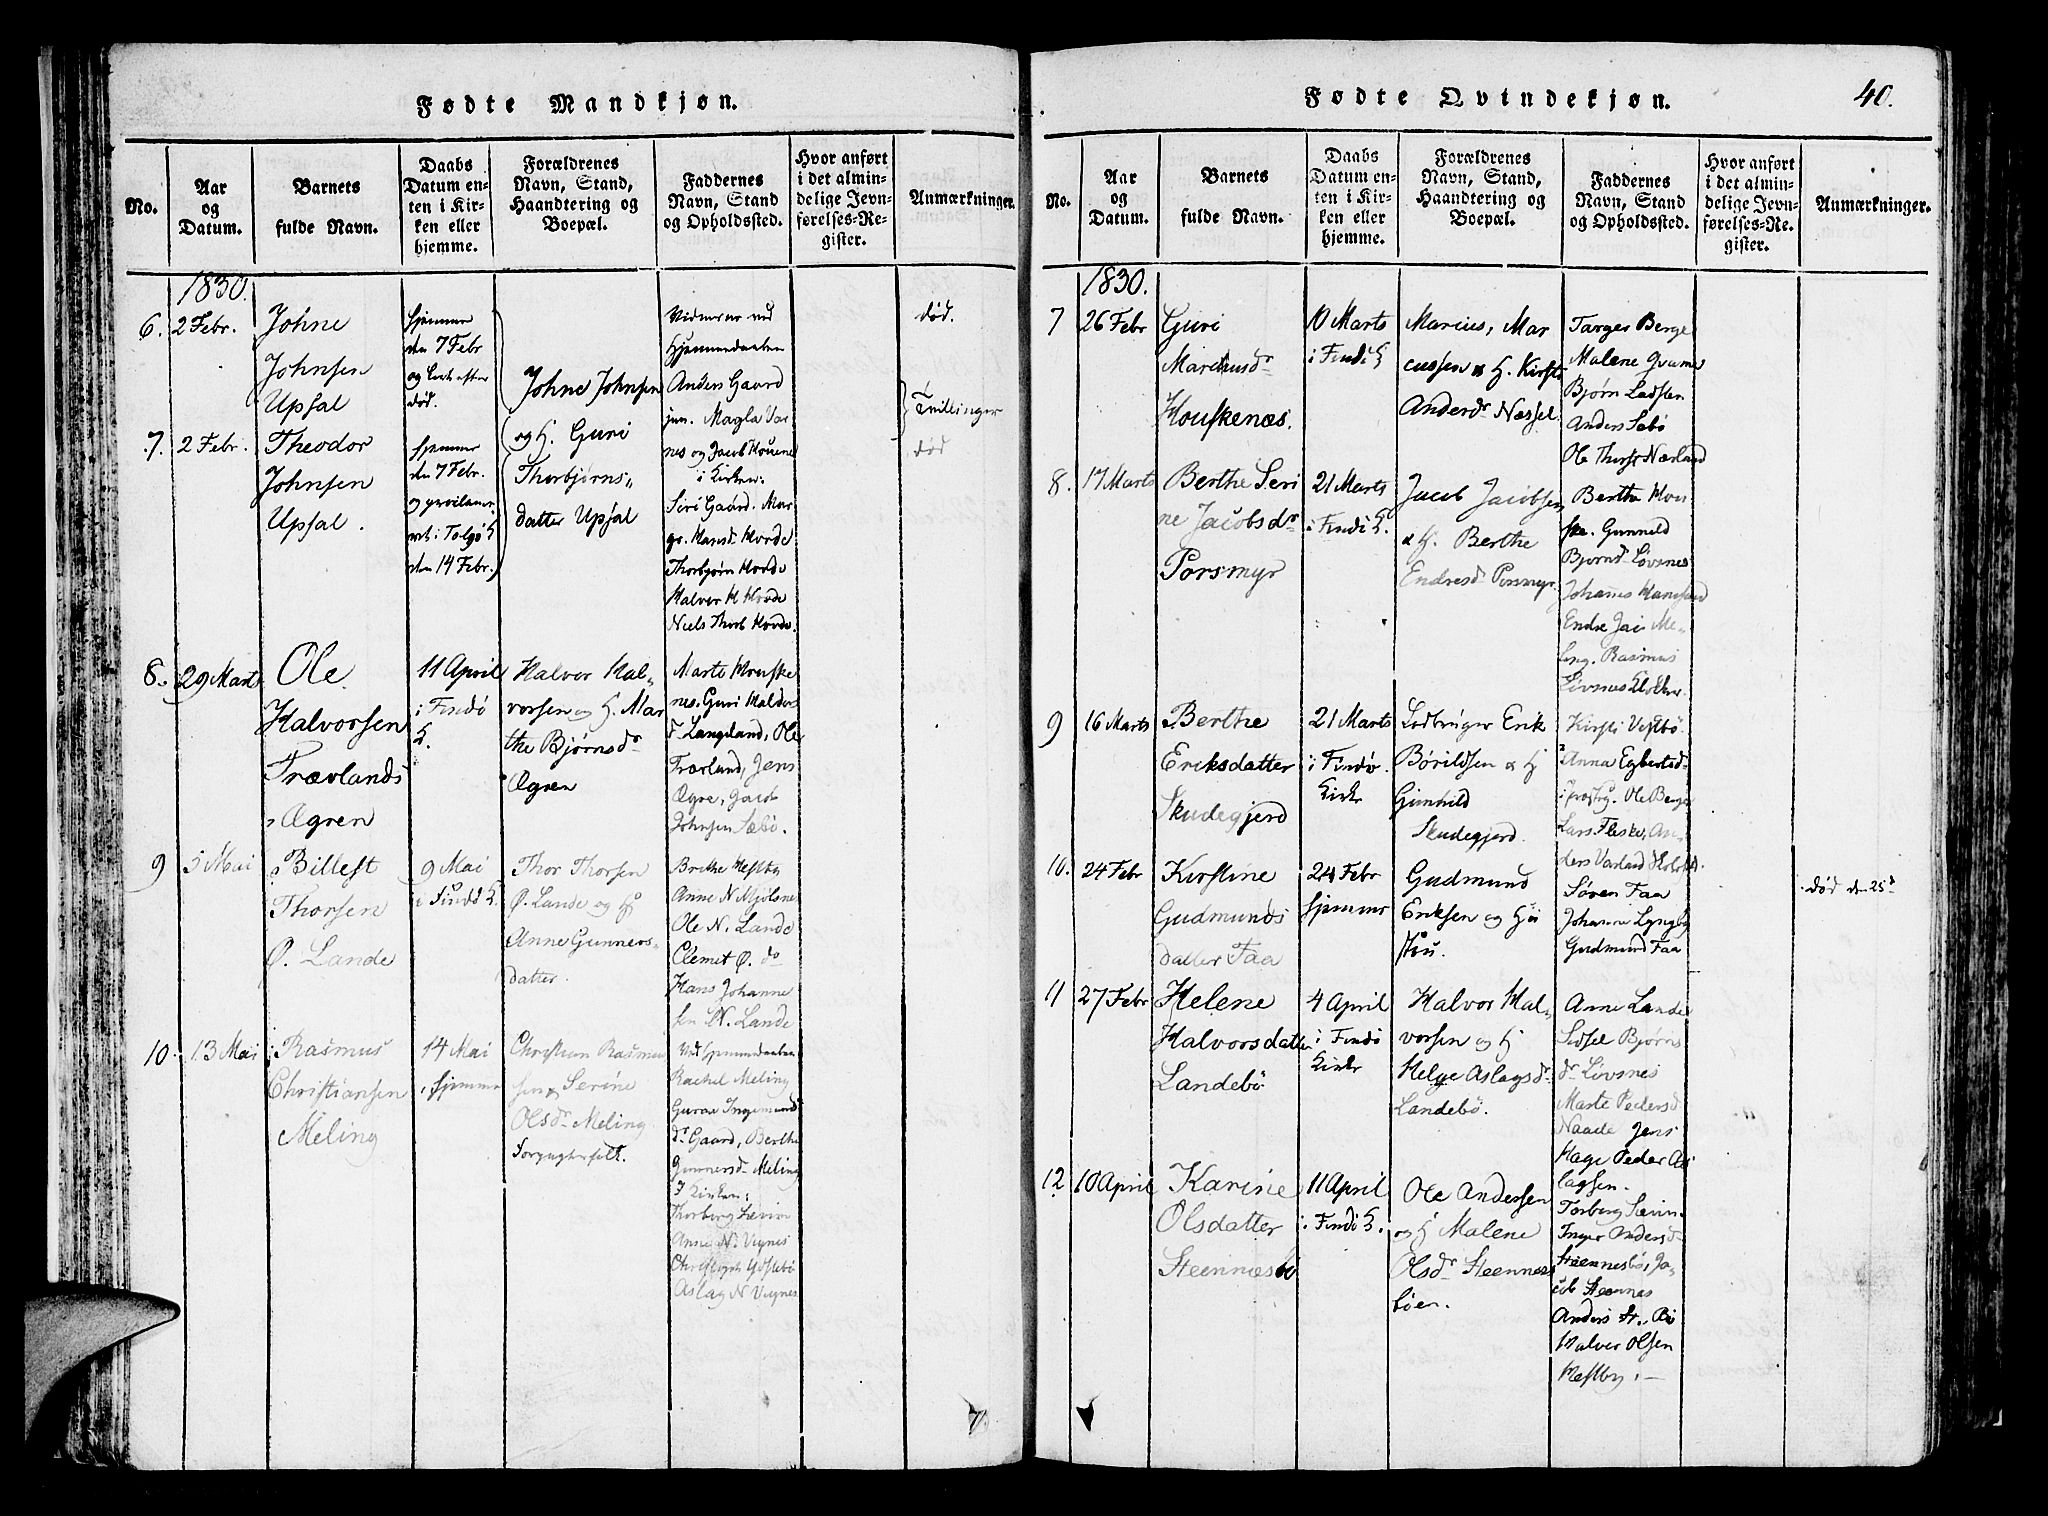 Fødte Mandkjøn.
No.
Aar
og
Datum.
Barnets
fulde Navn.
Daabs
Datum en-
ten i Kir-
ken eller
hjemme.
Forældrenes
Navn, Stand,
Haandtering og
Boepæl.
Faddernes
Navn, Stand
og Opholdssted.
Hvor anført
i det almin-
delige Jevn-
førelses-Re-
gister.
Anmærkninger.
1830.
6.
2 Febr.
Johne
Johnsen
Upsal
hjemme
den 7 Febr
og
død.
Johne Johnsen
og H. Guri
Thorbjørns-
datter Upsal
Vidnerne ved
Hjemmedaaben
Anders Gaard
jun. Magla Var
nes og Jacob
i Kirken:
Siri Gaard. Mar
gr. Hansd. Hovde
Thorbjørn Hovde
Halvor H Hovde
Niels Thorb Hovde.
død.
Tvillinger
7.
2 Febr.
Theodor
Johnsen
Upsal.
hjemme
den 7 Febr.
og
den 14 Febr.
død
8.
29 Marts
Ole
Halvorsen
Trævlands
Ægren
11 April
i Findø
K.
Halvor Hal-
vorsen og H. Mar
the Bjørnsdr
Ægren
Marte Houske
nes. Guri Haldors
d. Langeland, Ole
Trærland, Jens
Ægre, Jacob
Johnsen Sæbø.
9
5 Mai
Billest
Thorsen
Ø. Lande
9 Mai
i Findø K.
Thor Thorsen
Ø. Lande og H
Anne Gunners-
datter.
Brithe Hestby
Anne N Mjølsnes
Ole N. Lande
Clemet Ø. do
Hans Johanne
sen N. Lande
10.
13 Mai
Rasmus
Christiansen
Meling
14 Mai
hjemme
Christian Rasmus
sen & Serine
Olsdr Meling
Ved hjemmedaaben
Rachel Meling
Guroe Ingemund
dr Gaard, Berthe
Gunnersd. Meling
I Kirken:
Thorberg Sævin
Anne N. Vignes
Aslag N Vignes
Fødte Qvindekjøn.
40.
No.
Aar
og
Datum.
Barnets
fulde Navn.
Daabs
Datum en-
ten i Kir-
ken eller
hjemme.
Forældrenes
Navn, Stand,
Haandtering og
Boepæl.
Faddernes
Navn, Stand
og Opholdssted.
Hvor anført
i det almin-
delige Jevn-
førelses-Re-
gister.
Anmærkninger.
1830.
7
26 Febr
Guri
Marcusdr
Houskenæs.
10 Marts
i Findø K
Marius, Mar
cussen & H. Kirsti
Andersdr Næssel
Targer Berge
Malene Qvame
Bjørn Ladsten
Anders Sæbø
Ole Thorss Nærland
8.
17 Marts
Berthe Seri
ne Jacobsdr
Porsmyr
21 Marts
i Findø K.
Jacob Jacobsen
& H. Berthe
Endresd Porsmyr
Berthe Hou
ske. Gunneld
Bjørnsd. Løvsnes
Johannes
Endre Jac Me-
ling. Rasmus
Løvsnes Klokker.
9
16 Marts
Berthe
Eriksdatter
Skudegjerd
21 Marts
i Findø
Kirke
Erik
Børildsen & H
Gunhild
Skudegjerd.
Kirsti Vestbø
Anna Egbertsd
i Ole Berge
Lars Fleske, An-
ders Varland
10.
24 Febr
Kirstine
Gudmunds
datter Faa
24 Febr
hjemme
Gudmund
Eriksen og
Søven Faa
Johanne Lyngby
Gudmund Faa
død d. 25d
11
27 Febr
Helene
Halvorsdatter
Landebø
4 April
i Findø
Kirke
Halvor Hal-
vorsen og H
Helge Aslagsdr
Landebø.
Anne Lande
Sidsel Bjørns
dr Løvsnes
Marte Pedersd
Naade Jens
Hage Peder As
lagsen.
12
10 April
Karine
Olsdatter
Steennæsbø
11 April
i Findø K.
Ole Andersen
og H Malene
Olsdr Steennæs
bøen.
Torberg Sævin.
Inger Andersd
Steennesbø, Ja-
cob Steennes
Anders St. Bø
Halvor Olsen
Hestby.